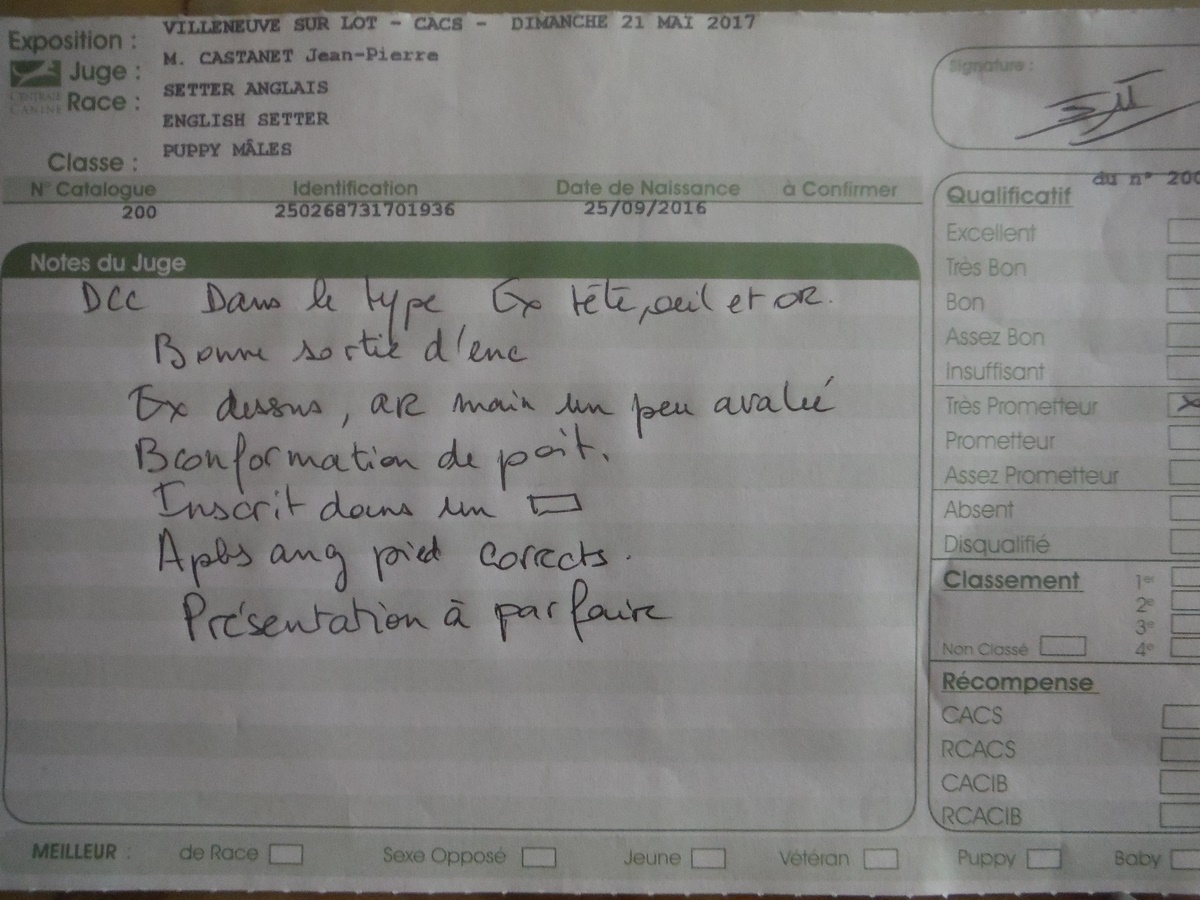 Exposition : VILLENEUVE SUR LOT - CACS - DIMANCHE 21 MAI 2017
Juge : M. CASTANET Jean-Pierre
CENTRALE CANINE
Race : SETTER ANGLAIS
ENGLISH SETTER
Classe : PUPPY MÂLES
Signature :
N° Catalogue Identification Date de Naissance à Confirmer
200 250268731701936 25/09/2016
Notes du Juge
DCC Dans le type Ex tête, oeil et OR.
Bonne sortie d'enc
Ex dessus, AR main un peu avalée
B conformation de poit.
Inscrit dans un
Aplbs ang pied corrects.
Présentation à parfaire
du n° 200
Qualificatif
Excellent
Très Bon
Bon
Assez Bon
Insuffisant
Très Prometteur X
Prometteur
Assez Prometteur
Absent
Disqualifié
Classement 1er
2e
3e
Non Classé 4e
Récompense
CACS
RCACS
CACIB
RCACIB
MEILLEUR : de Race Sexe Opposé Jeune Vétéran Puppy Baby